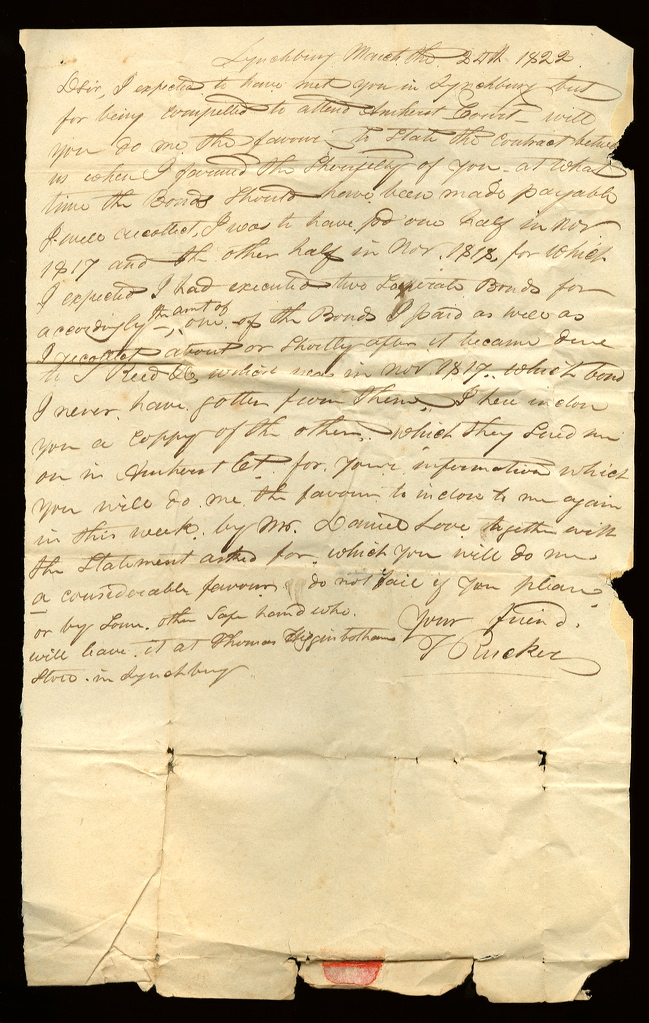 Lynchburg March the 24th 1822.
Dsir, I expected to have met you in Lynchburg but
for being compelled to attend Amherst Court - will
you do me the favour to State the contract between
us when I farmed the Sheriffalty of you - at what
time the Bonds Should have been made payable
I will recollect, I was to have pd one half in Nov.
1817 and the other half in Nov. 1818, for which
I expected I had executed two Seperate Bonds for
the amt of
accordingly, one of the Bonds I paid as well as
I recollect about or Shortly after it became due
to Reed which was in Nov 1817. which bond
I never have gotten from them, I here inclose
you a coppy of the others which they Sued me
on in Amherst Ct. for your information which
you will do me the favour to inclose to me again
in this week by Mr. Daniel Love together with
the Statement asked for which you will do me
a considerable favour do not fail if you please
or by Some other Safe hand who
will leave it at Thomas Higginbothams
Store in Lynchburg
Your friend,
Rucker